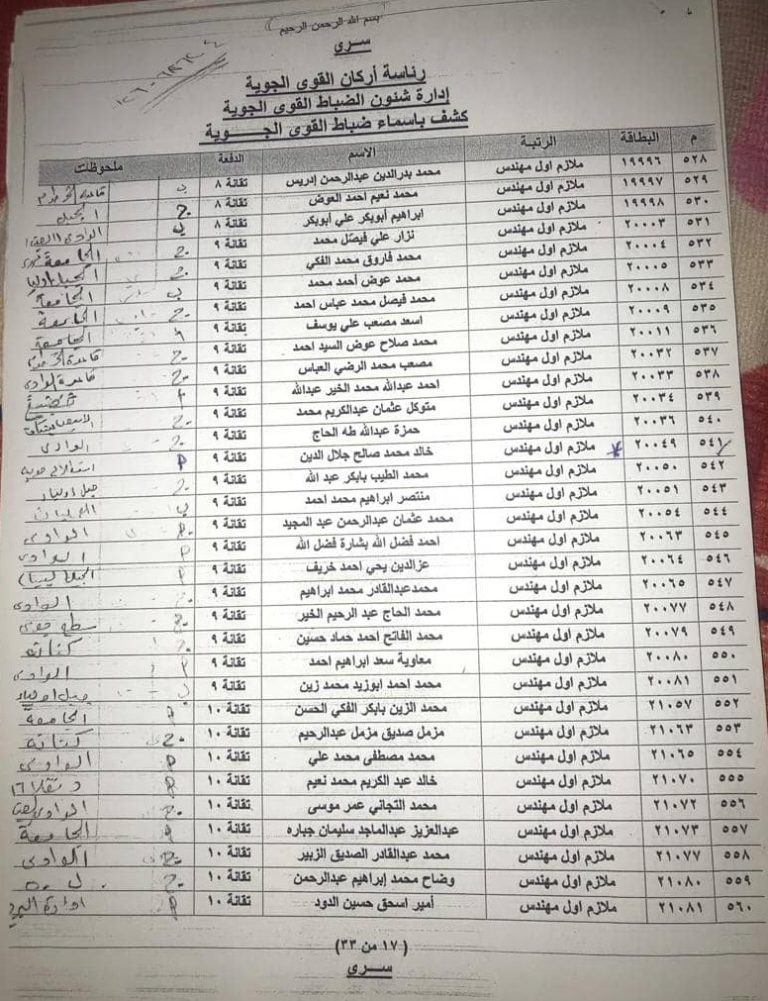 بسم الله الرحمن الرحيم
سري
رئاسة أركان القوى الجوية
إدارة شئون الضباط القوى الجوية
كشف باسماء ضباط القوى الجـــــوية
م البطاقة الرتبة الاسم الدفعة ملحوظات
٥٢٨ ١٩٩٩٦ ملازم اول مهندس محمد بدرالدين عبدالرحمن إدريس تقانة ٨
٥٢٩ ١٩٩٩٧ ملازم اول مهندس محمد نعيم احمد العوض تقانة ٨
٥٣٠ ١٩٩٩٨ ملازم اول مهندس ابراهيم أبوبكر علي أبوبكر تقانة ٨
٥٣١ ٢٠٠٠٣ ملازم اول مهندس نزار علي فيصل محمد تقانة ٩ الجامعة
٥٣٢ ٢٠٠٠٤ ملازم اول مهندس محمد فاروق محمد الفكي تقانة ٩
٥٣٣ ٢٠٠٠٥ ملازم اول مهندس محمد عوض أحمد محمد تقانة ٩ الجامعة
٥٣٤ ٢٠٠٠٨ ملازم اول مهندس محمد فيصل محمد عباس احمد تقانة ٩ الجامعة
٥٣٥ ٢٠٠٠٩ ملازم اول مهندس اسعد مصعب علي يوسف تقانة ٩ الجامعة
٥٣٦ ٢٠٠١١ ملازم اول مهندس محمد صلاح عوض السيد احمد تقانة ٩
٥٣٧ ٢٠٠٣٢ ملازم اول مهندس مصعب محمد الرضي العباس تقانة ٩ قاعدة الوادى
٥٣٨ ٢٠٠٣٣ ملازم اول مهندس احمد عبدالله محمد الخير عبدالله تقانة ٩
٥٣٩ ٢٠٠٣٤ ملازم اول مهندس متوكل عثمان عبدالكريم محمد تقانة ٩
٥٤٠ ٢٠٠٣٦ ملازم اول مهندس حمزة عبدالله طه الحاج تقانة ٩ الوادى
٥٤١ ٢٠٠٤٩ ملازم اول مهندس خالد محمد صالح جلال الدين تقانة ٩
٥٤٢ ٢٠٠٥٠ ملازم اول مهندس محمد الطيب بابكر عبد الله تقانة ٩ جبل اولياء
٥٤٣ ٢٠٠٥١ ملازم اول مهندس منتصر ابراهيم محمد احمد تقانة ٩
٥٤٤ ٢٠٠٥٤ ملازم اول مهندس محمد عثمان عبدالرحمن عبد المجيد تقانة ٩ الوادى
٥٤٥ ٢٠٠٦٣ ملازم اول مهندس احمد فضل الله بشارة فضل الله تقانة ٩ الوادى
٥٤٦ ٢٠٠٦٤ ملازم اول مهندس عزالدين يحي احمد خريف تقانة ٩
٥٤٧ ٢٠٠٦٥ ملازم اول مهندس محمدعبدالقادر محمد ابراهيم تقانة ٩ الوادى
٥٤٨ ٢٠٠٧٧ ملازم اول مهندس محمد الحاج عبد الرحيم الخير تقانة ٩
٥٤٩ ٢٠٠٧٩ ملازم اول مهندس محمد الفاتح احمد حماد حسين تقانة ٩ كنانه
٥٥٠ ٢٠٠٨٠ ملازم اول مهندس معاوية سعد ابراهيم احمد تقانة ٩ الوادى
٥٥١ ٢٠٠٨١ ملازم اول مهندس محمد احمد ابوزيد محمد زين تقانة ٩ جبل اولياء
٥٥٢ ٢١٠٥٧ ملازم اول مهندس محمد الزين بابكر الفكي الحسن تقانة ١٠ الجامعة
٥٥٣ ٢١٠٦٣ ملازم اول مهندس مزمل صديق مزمل عبدالرحيم تقانة ١٠ كنانه
٥٥٤ ٢١٠٦٥ ملازم اول مهندس محمد مصطفى محمد علي تقانة ١٠ الوادى
٥٥٥ ٢١٠٧٠ ملازم اول مهندس خالد عبد الكريم محمد نعيم تقانة ١٠ دنقلا
٥٥٦ ٢١٠٧٢ ملازم اول مهندس محمد التجاني عمر موسى تقانة ١٠ الوادى
٥٥٧ ٢١٠٧٣ ملازم اول مهندس عبدالعزيز عبدالماجد سليمان جباره تقانة ١٠ الجامعة
٥٥٨ ٢١٠٧٧ ملازم اول مهندس محمد عبدالقادر الصديق الزبير تقانة ١٠ الوادى
٥٥٩ ٢١٠٨٠ ملازم اول مهندس وضاح محمد إبراهيم عبدالرحمن تقانة ١٠
٥٦٠ ٢١٠٨١ ملازم اول مهندس أمير اسحق حسين الدود تقانة ١٠
(١٧ من ٣٣)
سري